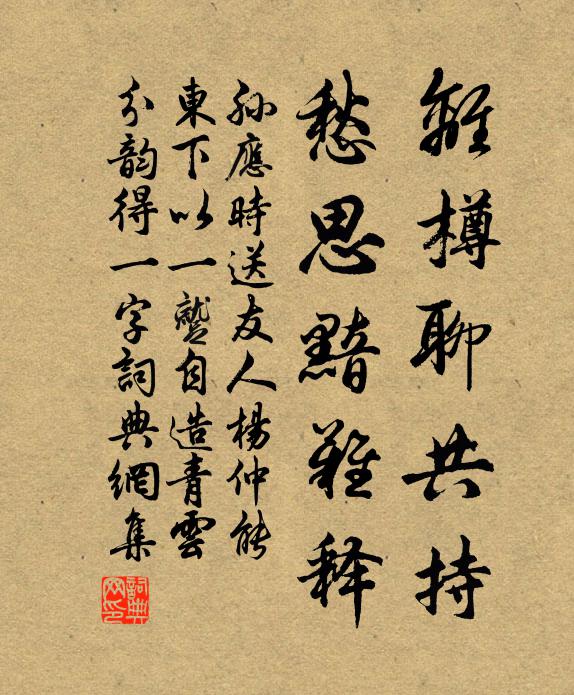 離樽聊共持
愁思黯難釋
孫應時送友人楊仲能
東下以一鶚自造青雲
分韵得一字詞典網集
詞典网印